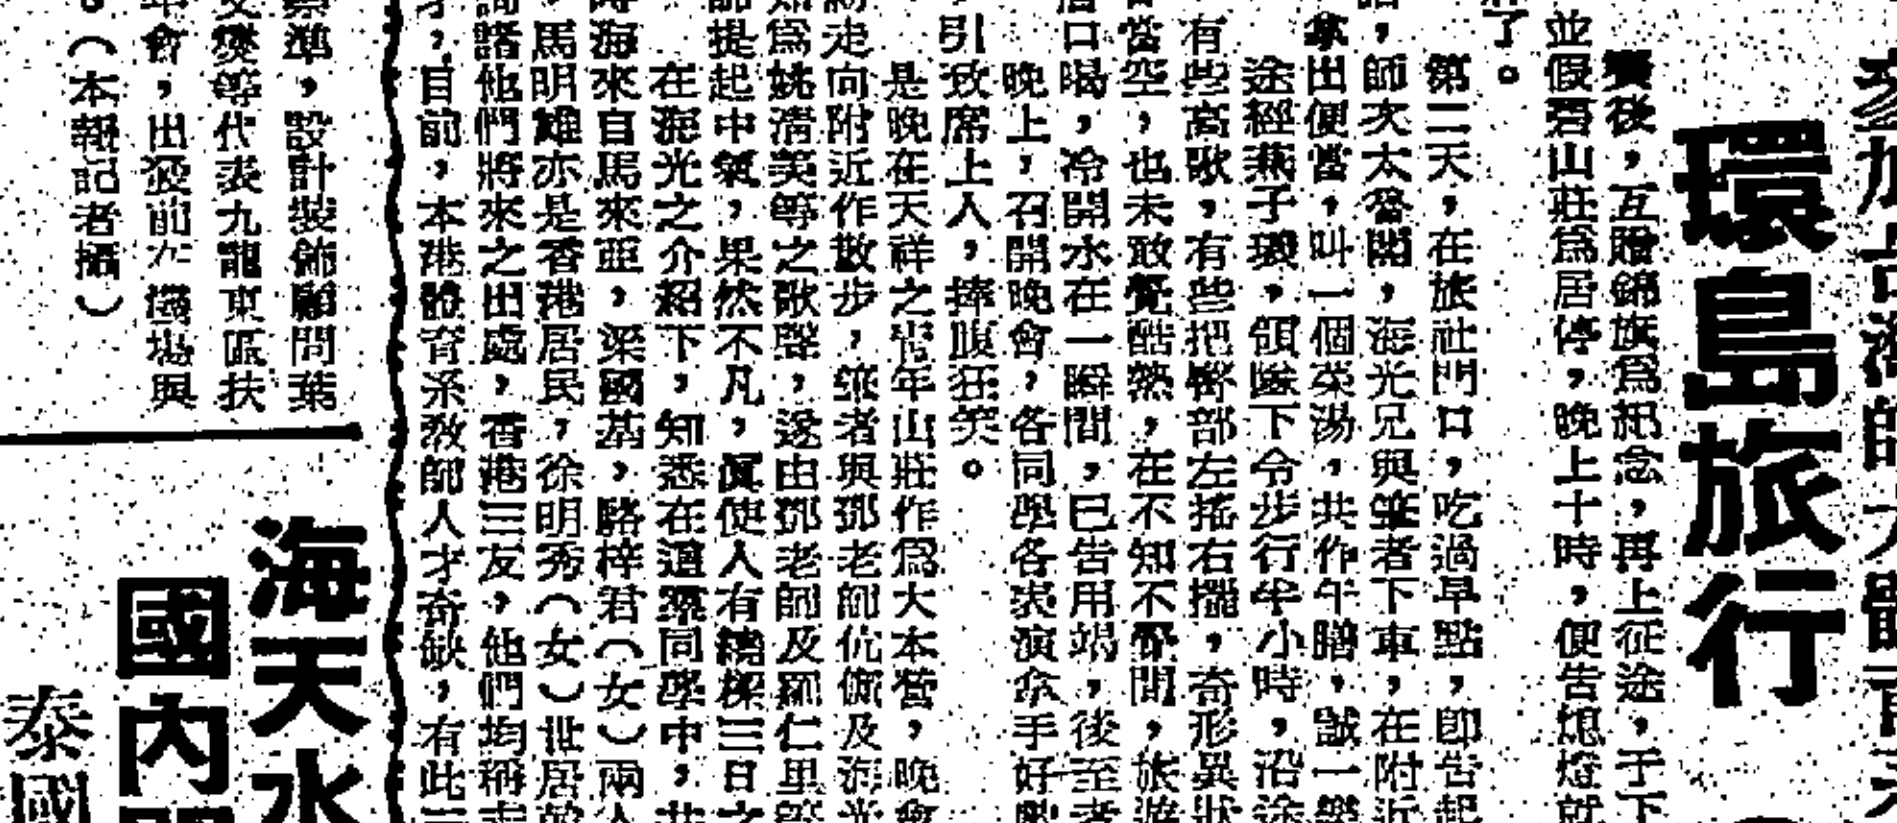 師大體育
環島旅行
賽後，互贈錦旗爲紀念，再上征途，于下
並假碧山莊爲居停，晚上十時，便告熄燈就
了。
第二天，在旅社門口，吃過早點，卽告起
，師次太魯閣，海光兄與筆者下車，在附近
拿出便當，叫一個菜湯，共作午膳，誠一樂
途經燕子環，領隊下令步行半小時，沿途
有些高歌，有些把臀部左搖右擺，奇形異狀
當空，也未敢覺酷熱，在不知不覺間，旅遊
口喝，冷開水在一瞬間，已告用竭，後至者
晚上，召開晚會，各同學各表演拿手好戲
引致席上人，捧腹狂笑。
是晚在天祥之靑年山莊作爲大本營，晚會
走向附近作散步，筆者與鄧老師伉儷及海光
爲姚淸美等之歌聲，遂由鄧老師及羅仁里等
師提起中氣，果然不凡，眞使人有繞樑三日之
在海光之介紹下，知悉在這羣同學中，共
海來自馬來亞，梁國基，駱梓君（女）兩人
，馬明雄亦是香港居民，徐明秀（女）世居
詢諸他們將來之出處，香港三友，他們均稱志
才，目前，本港體育系敎師人才奇缺，有此三
準，設計裝飾顧問葉
燦等代表九龍東區扶
年會，出發前在機場與
。（本報記者攝）
海天水
國內
泰國